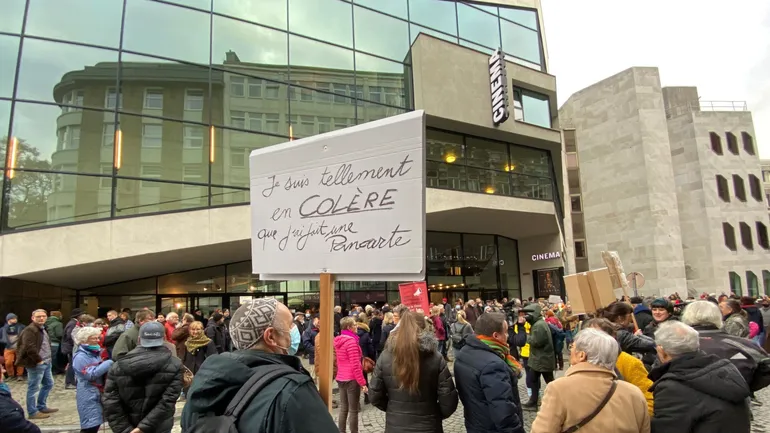 CINEMA
Je suis tellement
en COLÈRE
que j'ai fait une
Pancarte
CINEMA